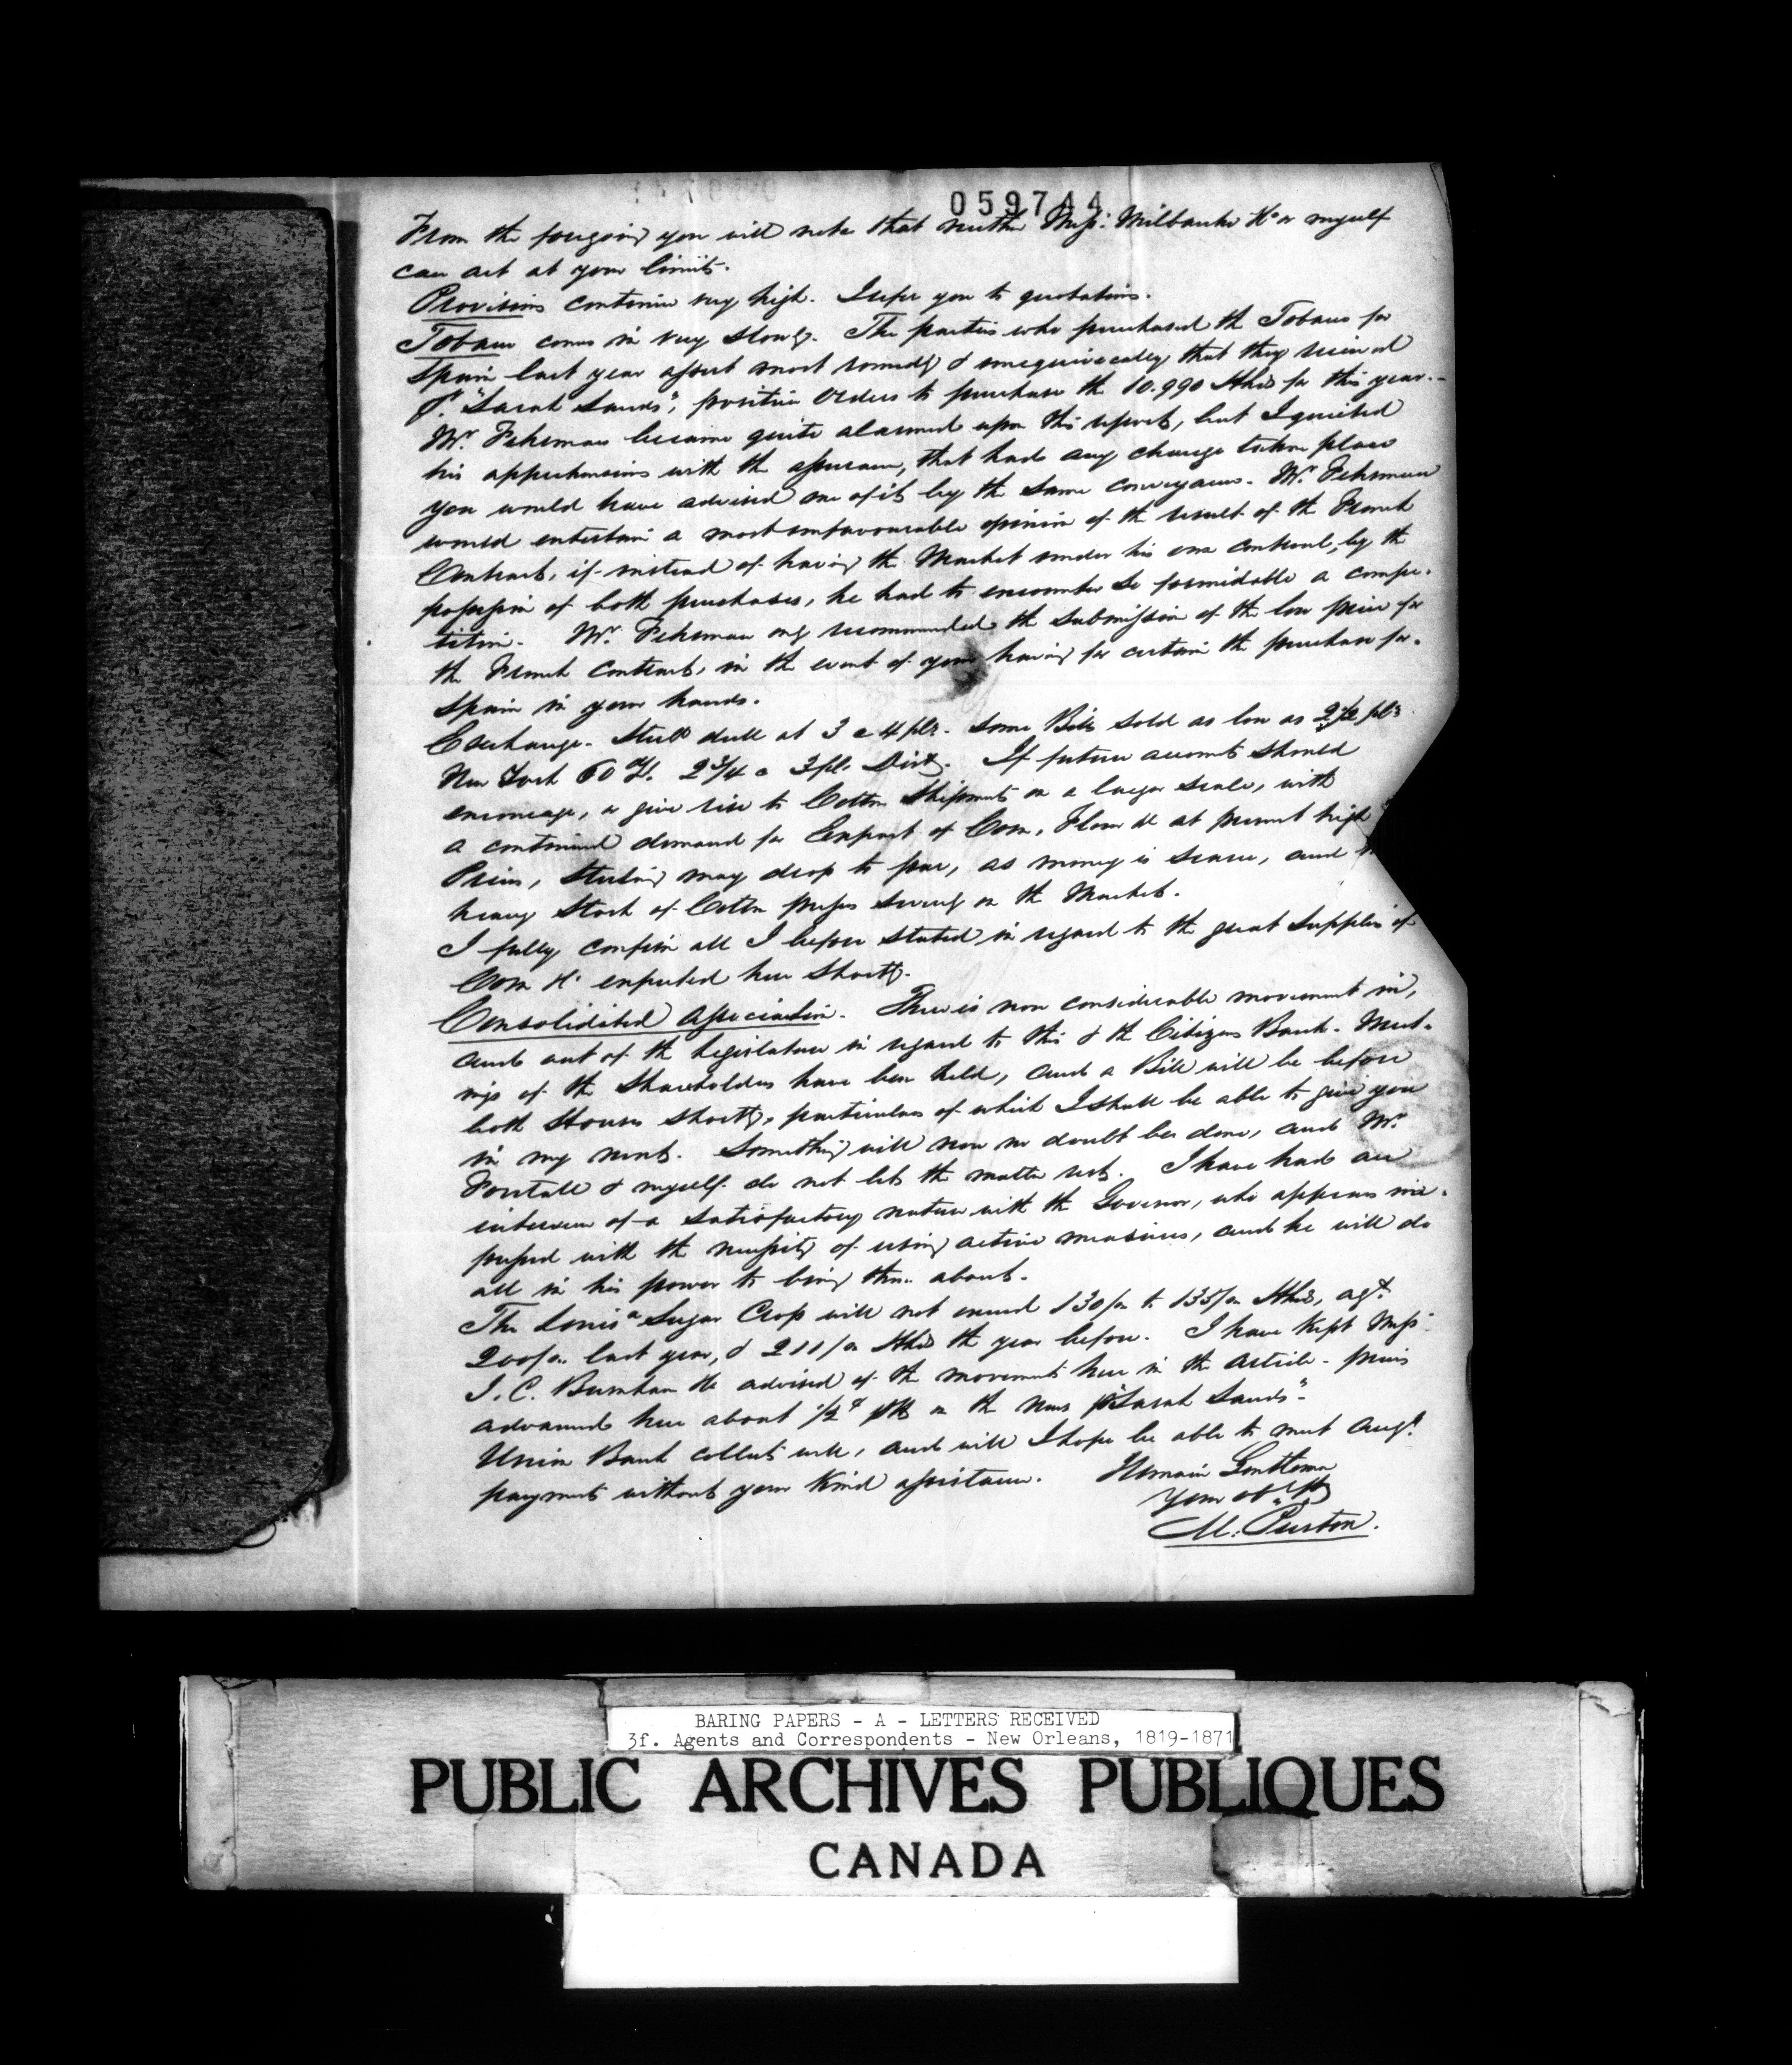 059744
From the foregoing you will note that neither Messrs. Milbanke &c or myself
can act at your limits.
Provisions continue very high. I refer you to quotations.
Tobacco comes in very slowly. The parties who purchased the Tobacco for
Spain last year assert most roundly & unequivocally that they received
pr. "Sarah Sands", positive orders to purchase the 10.990 Hhds for this year.-
Mr. Fehrman became quite alarmed upon this report, but I quieted
his apprehensions with the assurance, that had any change taken place
you would have advised me of it by the same conveyance. Mr. Fehrman
would entertain a most unfavourable opinion of the result of the French
Contract, if instead of having the Market under his own controul, by the
possession of both purchases, he had to encounter so formidable a compe-
tition. Mr. Fehrman only recommended the submission of the low price for
the French Contract, in the event of your having for certain the purchase for
Spain in your hands.
Exchange. Still dull at 3 a 4 pCt. Some Bills sold as low as 2 1/2 pCt
New York 60 2 3/4 a 3 pCt Disct. If future accounts should
encourage, or give rise to Cotton Shipments on a larger scale, with
a continued demand for Export of Corn, Flour &c at present high
Prices, Sterling may drop to par, as money is scarce, and
heavy Stock of Cotton presses severely on the Market.
I fully confirm all I before stated in regard to the great Supplies of
Corn &c expected here shortly.
Consolidated Association. There is now considerable movement in,
and out of the Legislature in regard to this & the Citizens Bank. Meet-
ings of the Shareholders have been held, and a Bill will be before
both Houses shortly, particulars of which I shall be able to give you
in my next. Something will now no doubt be done, and Mr.
Forstall & myself do not let the matter rest. I have had an
interview of a satisfactory nature with the Governor, who appears im-
pressed with the necessity of using active measures, and he will do
all in his power to bring them about.
The Louisa Sugar Crop will not exceed 130/m to 135/m Hhds, agt.
200/m last year, & 211/m Hhds the year before. I have kept Messrs
J. C. Burnham &c advised of the movements here in the article - prices
advanced here about 1/2 ¢ p℔ on the news p "Sarah Sands".
Union Bank collects well, and will I hope be able to meet Augt.
payments without your kind assistance. I remain Gentlemen
Your obt. St
M. Purton.
BARING PAPERS - A - LETTERS RECEIVED
3f. Agents and Correspondents - New Orleans, 1819-1871
PUBLIC ARCHIVES PUBLIQUES
CANADA